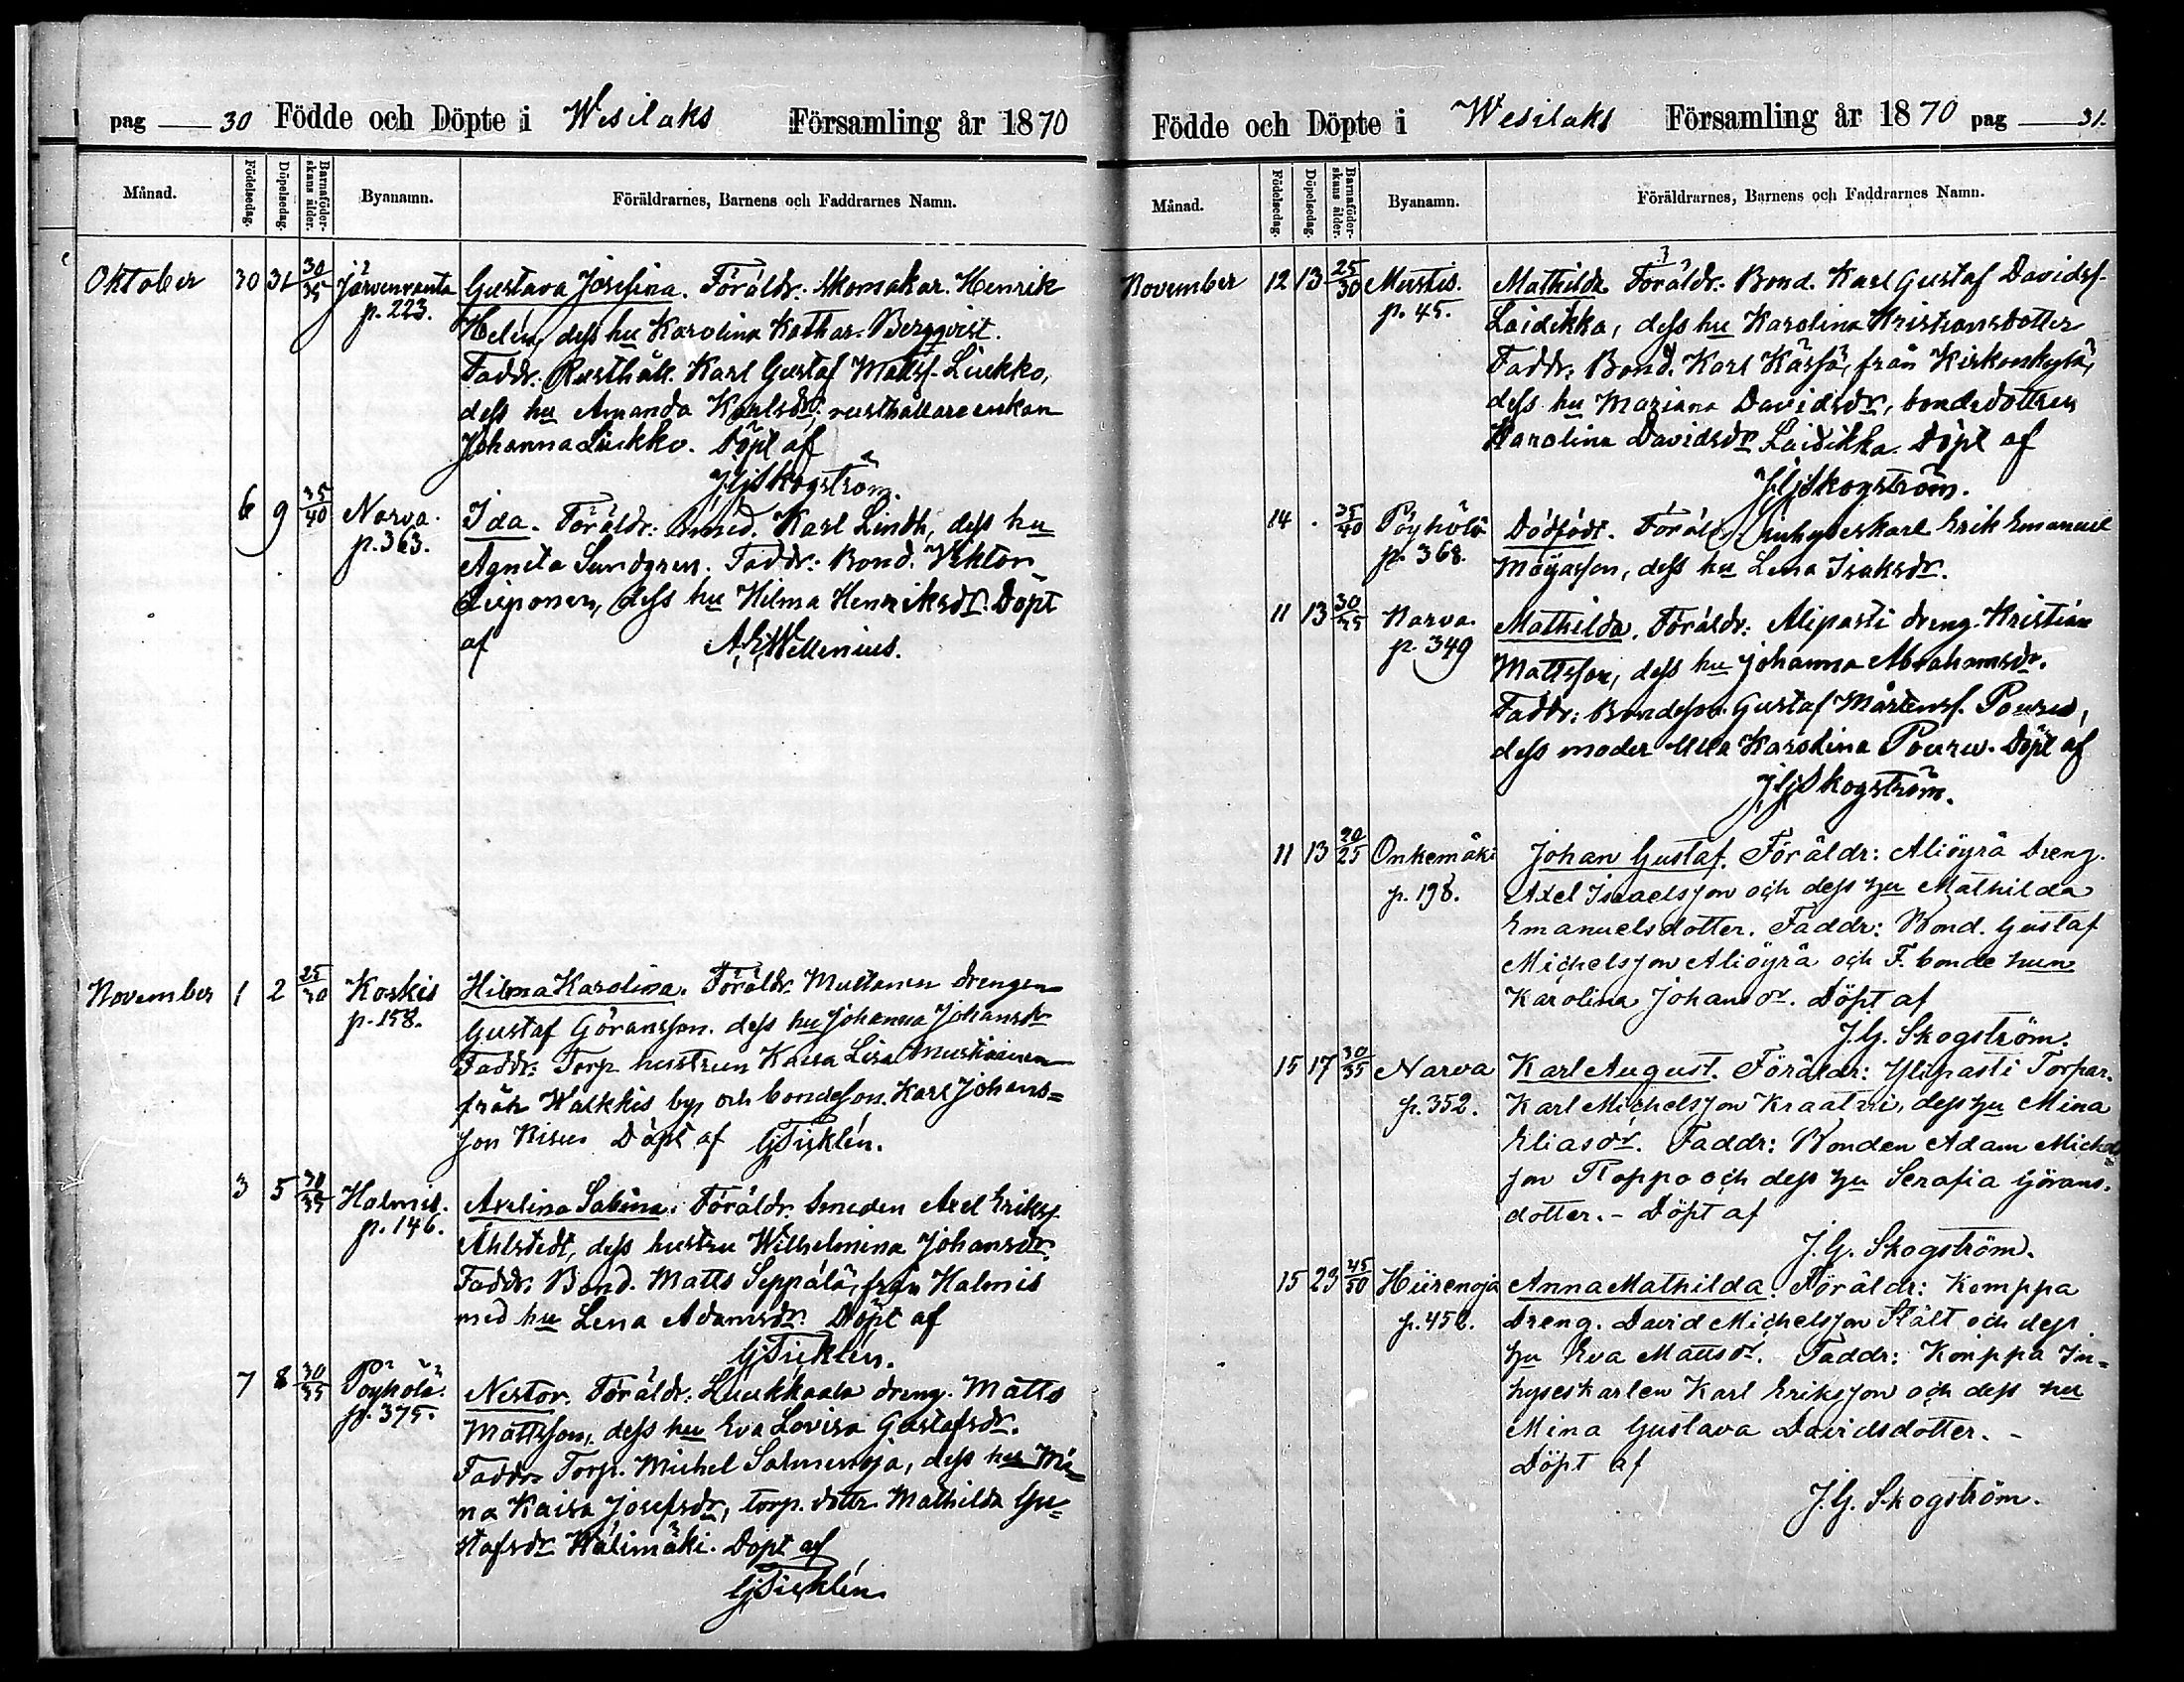 pag 30 Födde och Döpte i Wesilaks Församling år 1870
Månad. Födelsedag. Döpelsedag. Barnaföderskans ålder. Byanamn. Föräldrarnes, Barnens och Faddrarnes Namn.
Oktober 30 31 30/35 Järvenranta Gustava Josefina. Föräldr: Skomakar. Henrik
p. 223. Helén, dess hu Karolina Kathar. Bergqvist.
Faddr: Rusthåll. Karl Gustaf Mattss. Liukko,
dess hu Amanda Karlsdr, rusthållare enkan
Johanna Liukko. Döpt af
J.G. Skogström.
6 9 35/40 Narva. Ida. Föräldr: Smed. Karl Lindh, dess hu
p. 363. Agneta Sundgren. Faddr: Bond. Viktor
dess hu Hilma Henriksdr. Döpt
af A.E. Wellenius.
November 1 2 25/30 Koskis Hilma Karolina. Föräldr. drengen
p. 158. Gustaf Göransson. dess hu Johanna Johansdr
Faddr: Torp hustrun Kaisa Lisa
från Walkkis by och bondeson. Karl Johans=
son Döpt af G. Ticklén.
3 5 30/35 Halmis. Axelina Sabina. Föräldr. Smeden Axel Erikss.
p. 146. Ahlstedt, dess hustru Wilhelmina Johansdr.
Faddr. Bond. Matts Seppälä, från Halmis
med hu Lena Adamsdr. Döpt af
G. Ticklén.
7 8 30/35 Pöyhölä. Nestor. Föräldr: Luukkaala dreng. Matts
p. 375. Mattsson, dess hu Eva Lovisa Gustafsdr.
Faddr. Torp. Michel Salmenoja, dess hu Mi=
na Kaisa Josefsdr, torp. dottr. Mathilda Gu=
stafsdr Wälimäki. Döpt af
G. Ticklén
Födde och Döpte i Wesilaks Församling år 1870 pag 31.
Månad. Födelsedag. Döpelsedag. Barnaföderskans ålder. Byanamn. Föräldrarnes, Barnens och Faddrarnes Namn.
November 12 13 25/30 Mustis. Mathilda. Föräldr: Bond. Karl Gustaf Davidss.
p. 45. Laidikka, dess hu Karolina Kristiansdotter
Faddr: Bond. Karl från Kirkonkylä,
dess hu Mariana Davidsdr, bondedottren
Karolina Davidsdr Laidikka. Döpt af
J.G. Skogström.
14 . 35/40 Pöyhölä Dödfödt. Föräldr. inhyseskarl Erik Emanuel
p. 368. dess hu Lena Isaksdr.
11 13 30/35 Narva. Mathilda. Föräldr: Alipasti dreng. Kristian
p. 349 Mattsson, dess hu Johanna Abrahamsdr.
Faddr: Bondeson. Gustaf Mårtenss. Pouru,
dess moder Ulla Karolina Pouru. Döpt af
J.G. Skogström.
11 13 20/25 Onkemäki Johan Gustaf. Föräldr: Aliöyrä Dreng.
p. 198. Axel Israelsson och dess hu Mathilda
Emanuelsdotter. Faddr: Bond. Gustaf
Michelsson Aliöyrä och F. bonde hun
Karolina Johansdr. Döpt af
J.G. Skogström.
15 17 30/35 Narva Karl August. Föräldr: Ylipasti Torpar.
p. 352. Karl Michelsson Kraatari, dess hu Mina
Eliasdr. Faddr: Bonden Adam Michel
son Roppo och dess hu Serafia Görans.
dotter. - Döpt af
J.G. Skogström.
15 23 45/50 Hiirenoja Anna Mathilda. Föräldr: Komppa
p. 452. Dreng. David Michelsson Stålt och dess
hu Eva Mattsdr. Faddr: Komppa In=
hyseskarlen Karl Eriksson och dess hu
Mina Gustava Davidsdotter. -
Döpt af
J.G. Skogström.